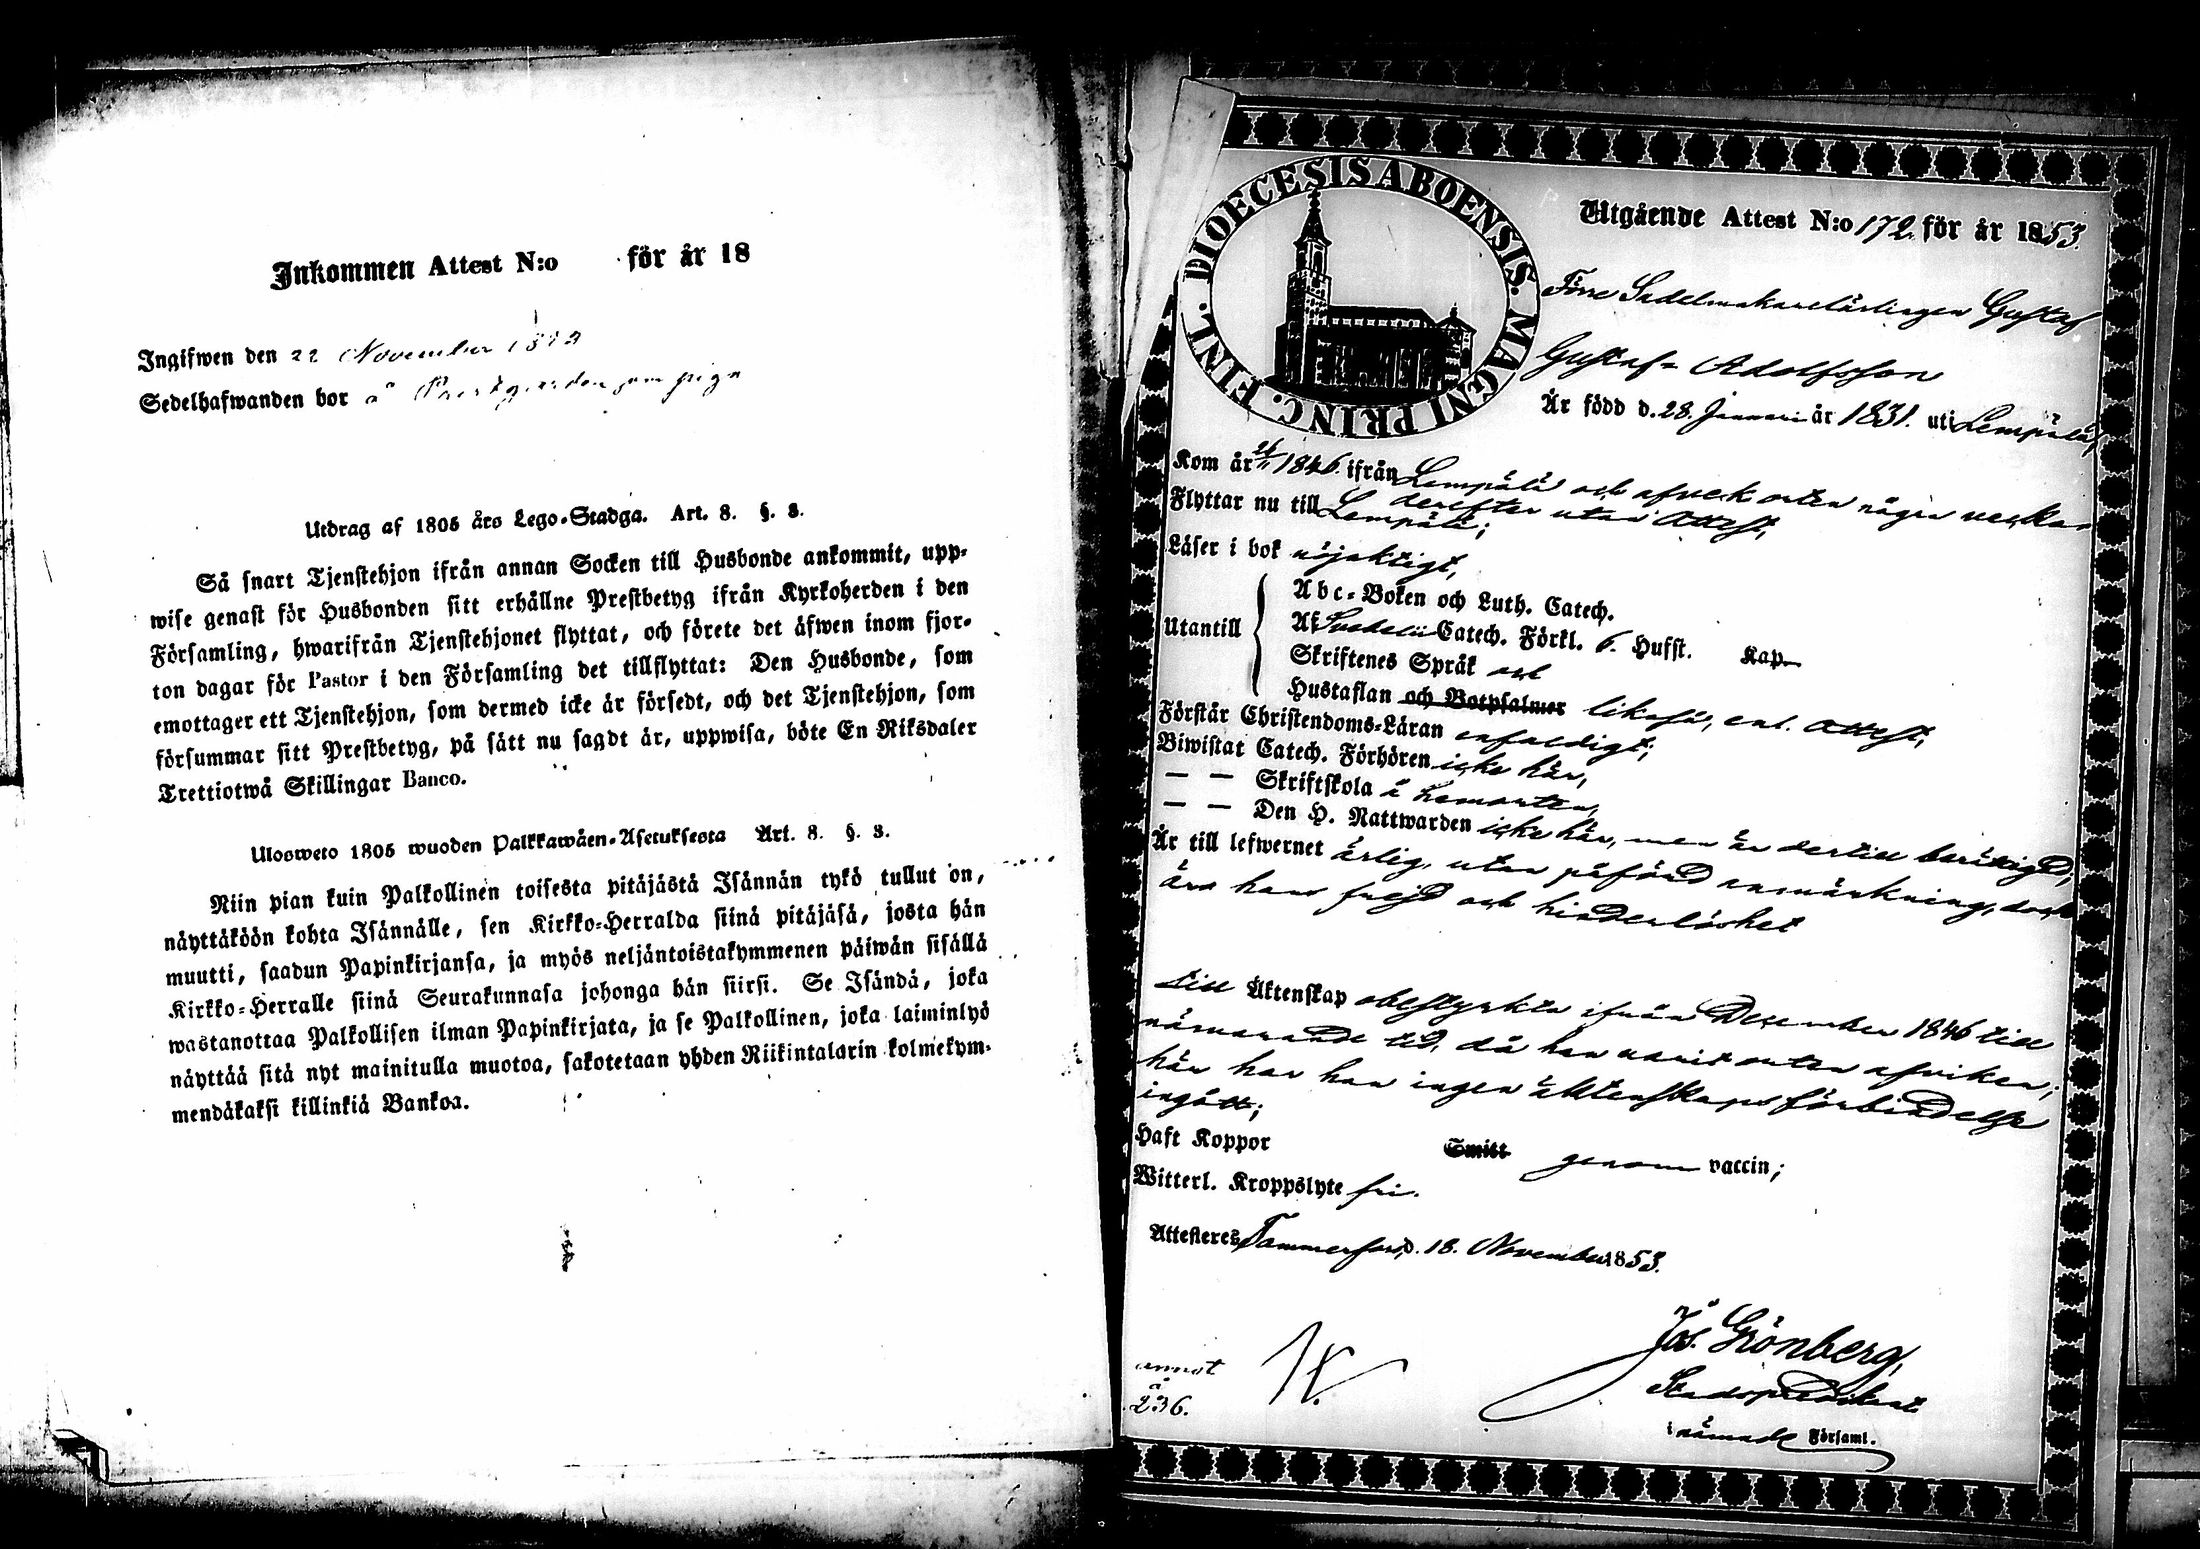 Inkommen Attest N:o för år 18
Ingifwen den 22 November
Sedelhafwanden bor å Prestgården som piga
Utdrag af 1805 års Lego-Stadga. Art. 8. §. 3.
Så snart Tjenstehjon ifrån annan Socken till Husbonde ankommit, upp-
wise genast för Husbonden sitt erhållne Prestbetyg ifrån Kyrkoherden i den
Församling, hwarifrån Tjenstehjonet flyttat, och förete det äfwen inom fjor-
ton dagar för Pastor i den Församling det tillflyttat: Den Husbonde, som
emottager ett Tjenstehjon, som dermed icke är försedt, och det Tjenstehjon, som
försummar sitt Prestbetyg, på sätt nu sagdt är, uppwisa, böte En Riksdaler
Trettiotwå Skillingar Banco.
Ulosweto 1805 wuoden Palkkawäen-Asetuksesta Art. 8. §. 3.
Niin pian kuin Palkollinen toisesta pitäjästä Isännän tykö tullut on,
näyttäköön kohta Isännälle, sen Kirkko-Herralda siinä pitäjäsä, josta hän
muutti, saadun Papinkirjansa, ja myös neljäntoistakymmenen päiwän sisällä
Kirkko-Herralle siinä Seurakunnasa johonga hän siirsi. Se Isändä, joka
wastanottaa Palkollisen ilman Papinkirjata, ja se Palkollinen, joka laiminlyö
näyttää sitä nyt mainitulla muotoa, sakotetaan yhden Riikintalarin kolmekym-
mendäkaksi killinkiä Bankoa.
DIOECESIS ABOENSIS. MAGNI PRINC. FINL.
Utgående Attest N:o 172. för år 1853.
Förre Sadelmakarelärlingen Gustaf
Gustaf Adolfsson
Är född d. 28. Januari år 1831. uti Lempälä,
Kom år 1846. ifrån Lempälä och afvek orten några veckor
derefter utan Attest,
Flyttar nu till Lempälä;
Läser i bok nöjaktigt,
Utantill
Abc-Boken och Luth. Catech.
Af Svebelii Catech. Förkl. 6. Hufst. Kap.
Skriftenes Språk och
Hustaflan och Botpsalmer likaså, enl. Attest,
Förstår Christendoms-Läran enfaldigt;
Biwistat Catech. Förhören icke här,
— — Skriftskola å hemorten,
— — Den H. Nattwarden icke här, men är dertill berättigad;
Är till lefwernet ärlig, utan påförd anmärkning, dock
äro hans frejd och hinderlöshet
till Äktenskap obestyrkta ifrån December 1846 till
närvarande tid, då han varit orten afviken;
här har han ingen äktenskapsförbindelse
ingått;
Haft Koppor Smitt genom vaccin;
Witterl. Kroppslyte fri.
Attesteres Tammerfors, d. 18. November 1853.
Jos. Grönberg,
Stadspredikant
i nämnde Församl.
annot
å
236.